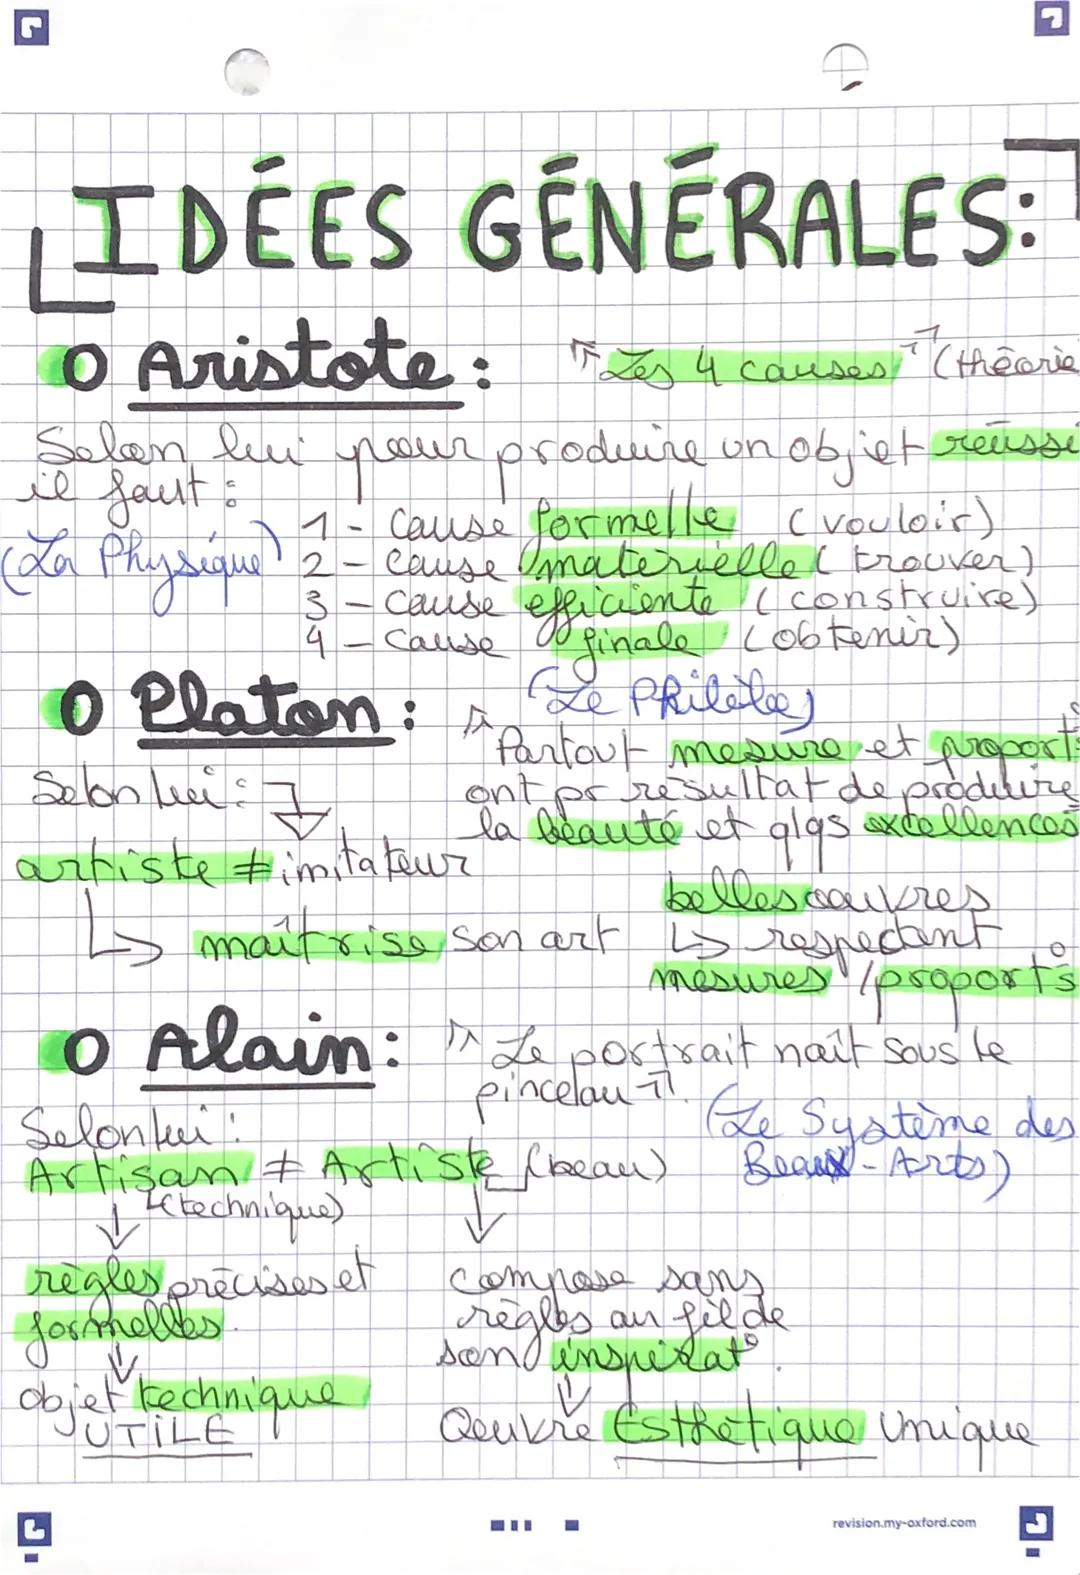 IDÉES GÉNÉRALES:
O Aristote : "Les 4 causes" (théorie
Selon lui pour produire un objet réussi
il faut :
(La Physique)
1 - cause formelle (vouloir)
2 - cause matérielle (trouver)
3 - cause efficiente (construire)
4 - cause finale (obtenir)
O Platon : (Le Philèbe)
"Partout mesure et proport°
ont pr résultat de produire
la beauté et qlqs excellences
Selon lui :
artiste ≠ imitateur
↳ maîtrise son art
belles oeuvres
↳ respectent
mesures / proport°s
O Alain : "Le portrait naît sous le
pinceau".
(Le Système des
Beaux-Arts)
Selon lui :
Artisan ≠ Artiste (beau)
↳ (technique)
règles précises et
formelles.
objet technique
UTiLE
compose sans
règles au fil de
son inspirat°.
Oeuvre Esthétique Unique
revision.my-oxford.com